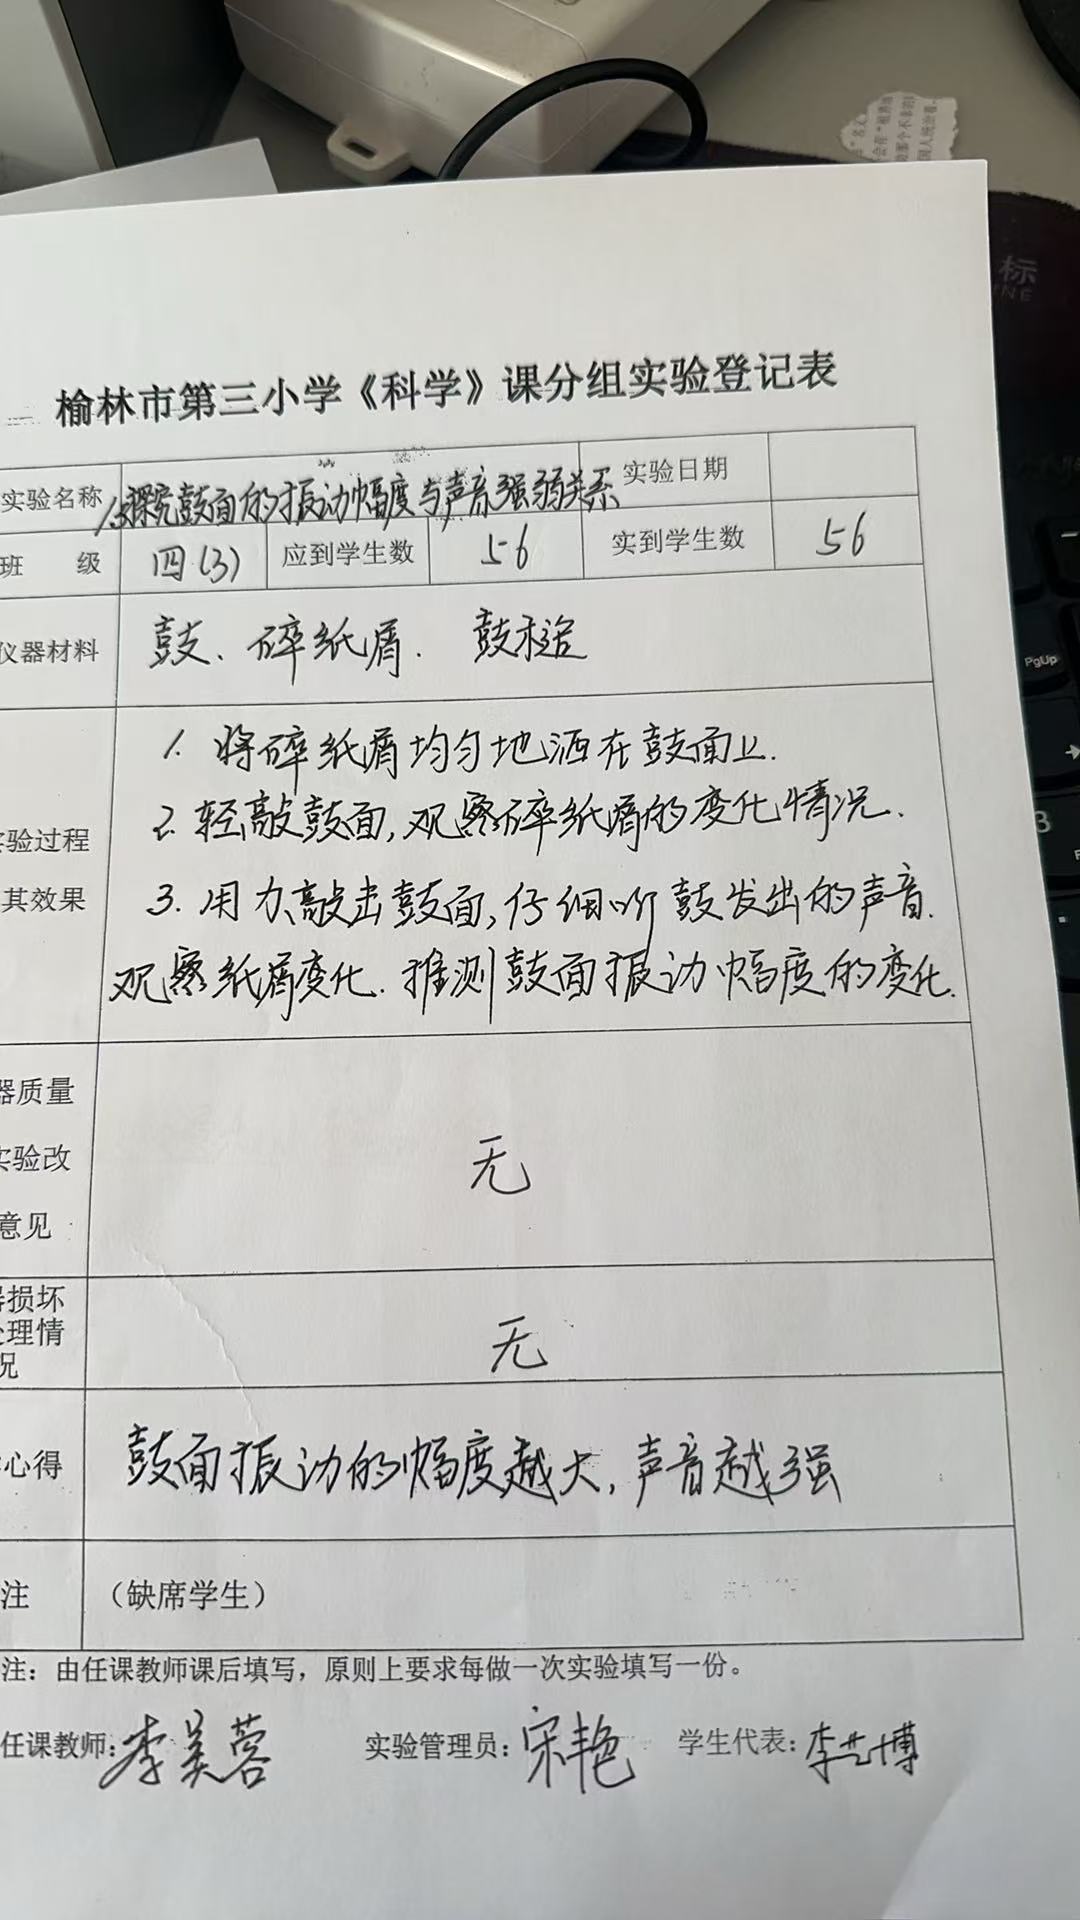 标
PgUp
3
榆林市第三小学《科学》课分组实验登记表
实验名称 1.探究鼓面的振动幅度与声音强弱关系 实验日期
班 级 四(3) 应到学生数 56 实到学生数 56
仪器材料 鼓、碎纸屑. 鼓槌
1. 将碎纸屑均匀地洒在鼓面上.
2. 轻敲鼓面,观察碎纸屑的变化情况.
验过程
3. 用力敲击鼓面,仔细听鼓发出的声音.
其效果
观察纸屑变化.推测鼓面振动幅度的变化.
器质量
实验改
意见
无
损坏
处理情
况
无
心得 鼓面振动的幅度越大,声音越强
注 (缺席学生)
注：由任课教师课后填写，原则上要求每做一次实验填写一份。
任课教师:李美蓉 实验管理员:宋艳 学生代表:李艺博